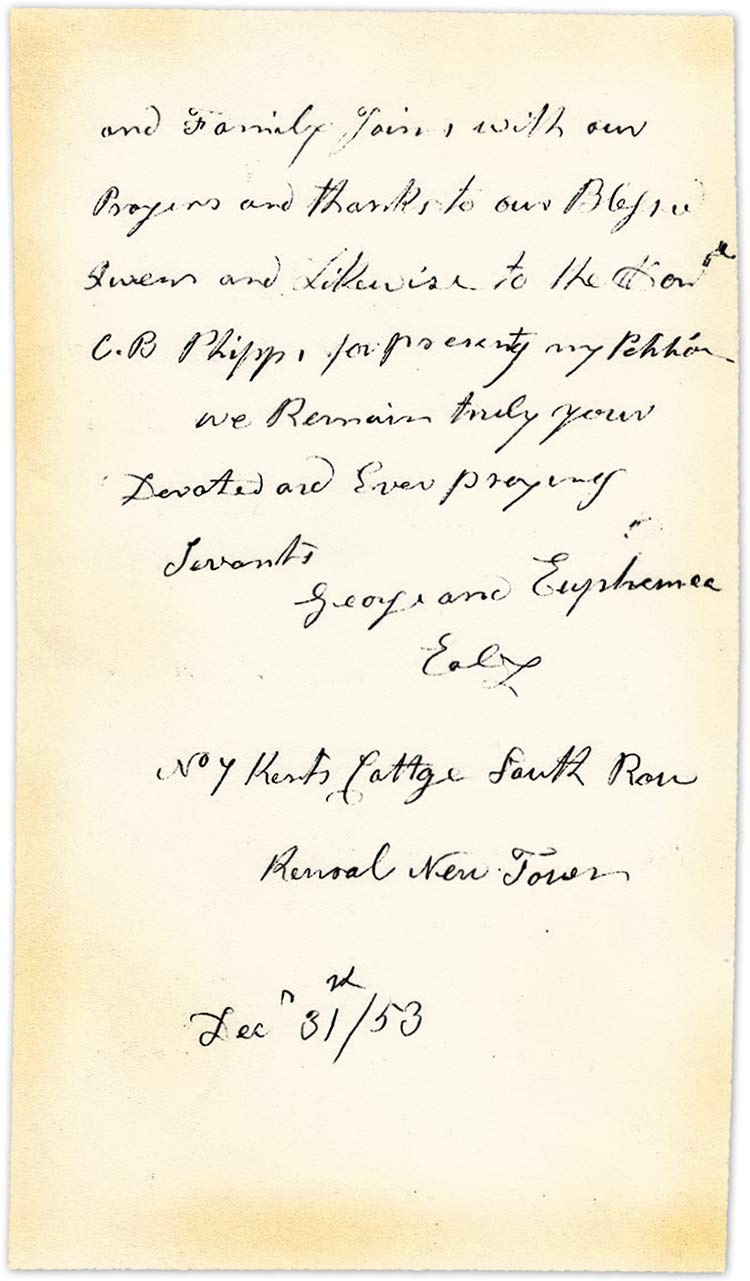 and Family Joins with our
Prayers and thanks to our Blessed
Queen and Likewise to the Hon
C.B Phipps for presentg my Petition
we Remain truly your
Devoted and Ever praying
Servants
George and Euphemea
Ealy
No 7 Kents Cottge South Row
Kensal New Town
Decr 31st/53